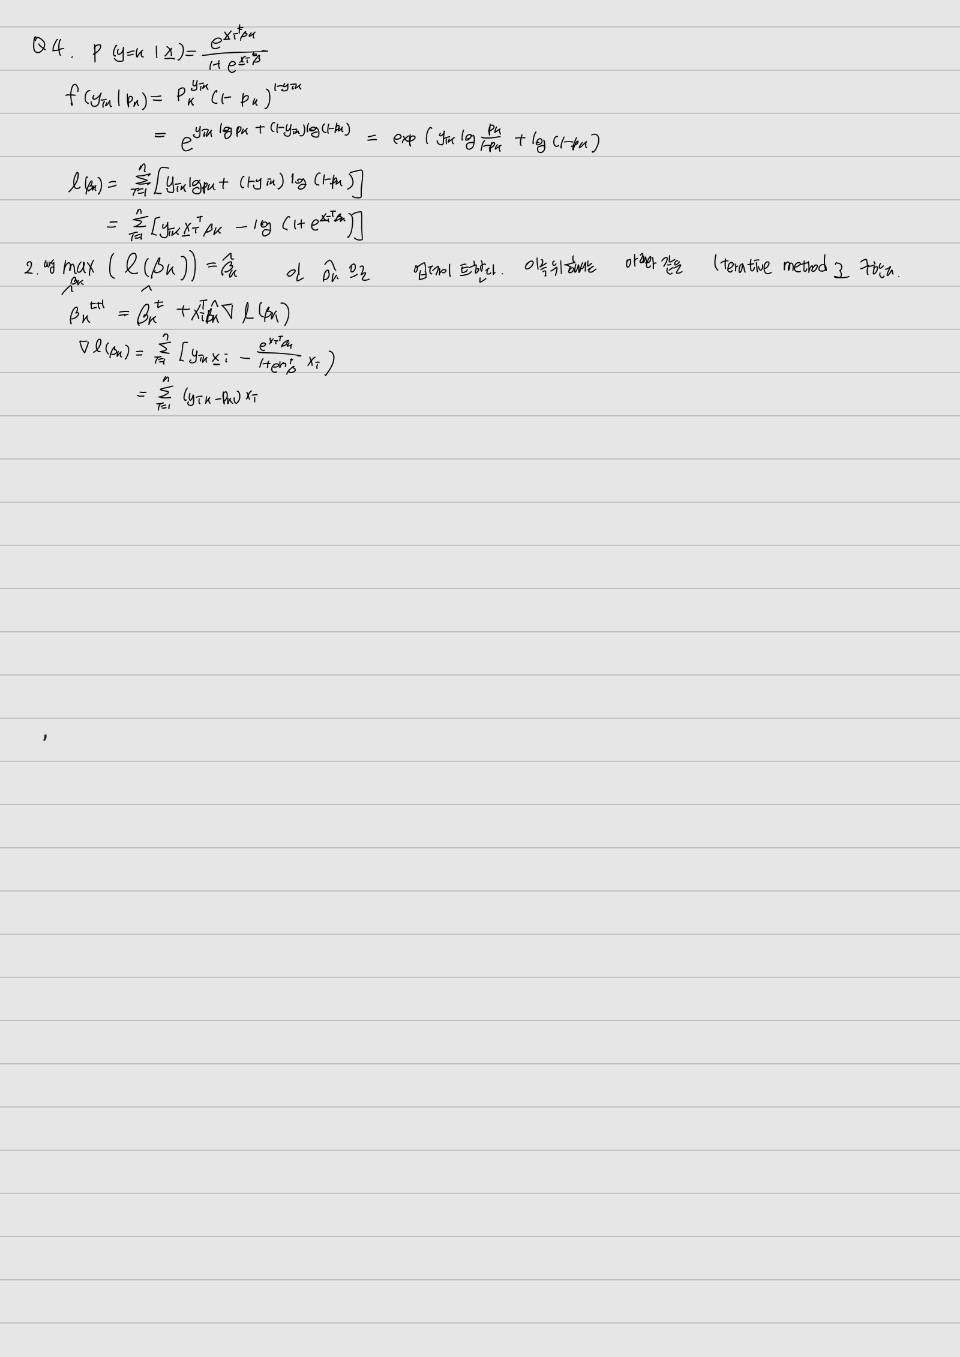 Q4. P(y=k | x) = e^{x_i^T β_k} / 1+e^{x_i^T β}
f(y_ik | p_k) = p_k^{y_ik} (1-p_k)^{1-y_ik}
= e^{y_ik log p_k + (1-y_ik) log(1-p_k)} = exp(y_ik log p_k/1-p_k + log(1-p_k))
l(β_k) = Σ_{i=1}^n [y_ik log p_k + (1-y_ik) log(1-p_k)]
= Σ_{i=1}^n [y_ik x_i^T β_k - log(1+e^{x_i^T β_k})]
2. arg max_{β_k} (l(β_k)) = β̂_k 인 β̂_k 으로 업데이트한다. 이를 위해서는 아래와 같은 iterative method로 구한다.
β̂_k^{t+1} = β̂_k^t + ∇l(β_k)
∇l(β_k) = Σ_{i=1}^n [y_ik x_i - e^{x_i^T β_k} / 1+e^{x_i^T β} x_i)
= Σ_{i=1}^n (y_ik - p_ki) x_i